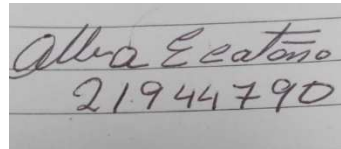 Alba E Cataño
21944790